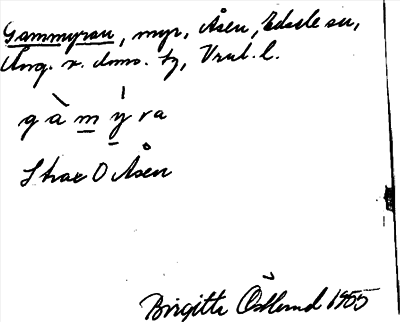 Gammyran, myr, Åsen, Edsele sn,
Ång. v. doms. tg, Vrml. l.
gàmýra
Strax O Åsen
Birgitte Östlund 1955